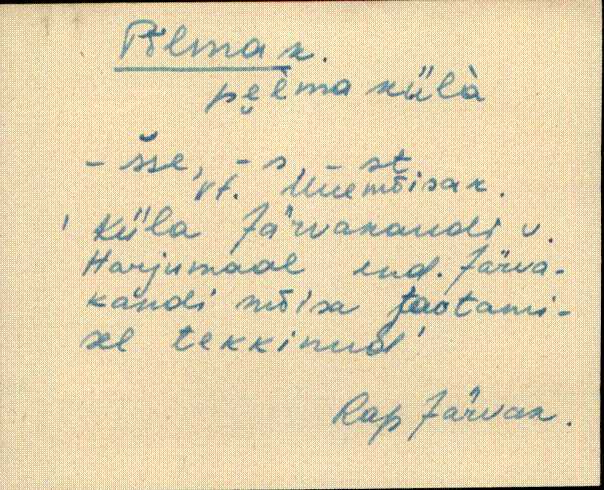 Põlma k.
pe̮lma külà
- sse, - s, - st
vt. Uuemõisa k.
' Küla Järvakandi v.
Harjumaal end. Järva-
kandi mõisa jaotami-
sel tekkinud'
Rap Järvak.